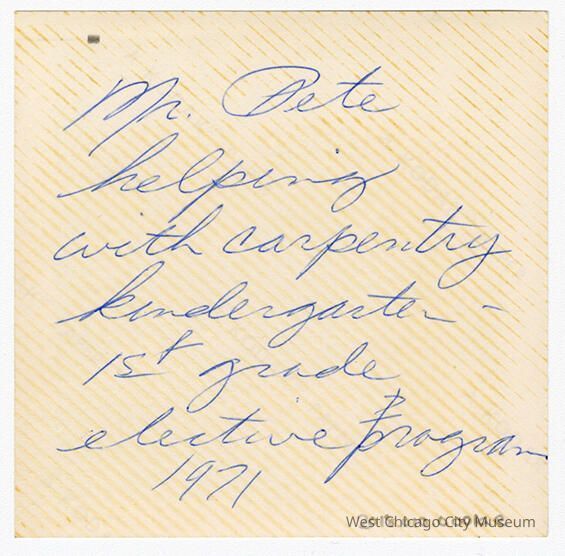 Mr. Pete
helping
with carpentry
kindergarten -
1st grade
elective program
1971
West Chicago City Museum